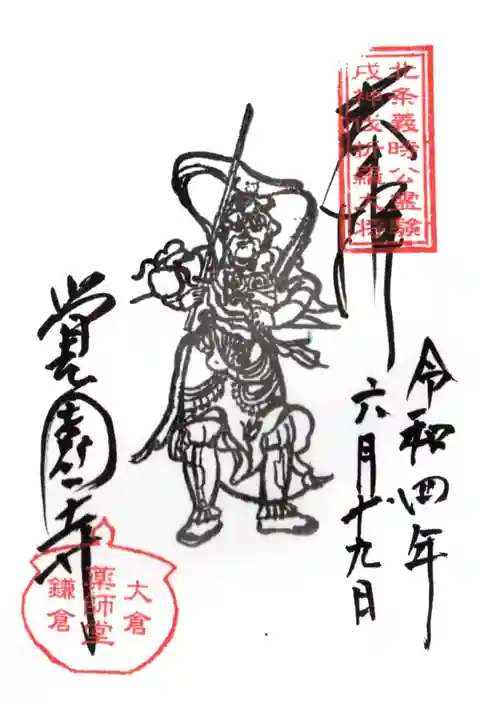 奉拝
北条義時公霊験
戌神伐折羅大将
令和四年
六月廿九日
覚園寺
大倉
薬師堂
鎌倉